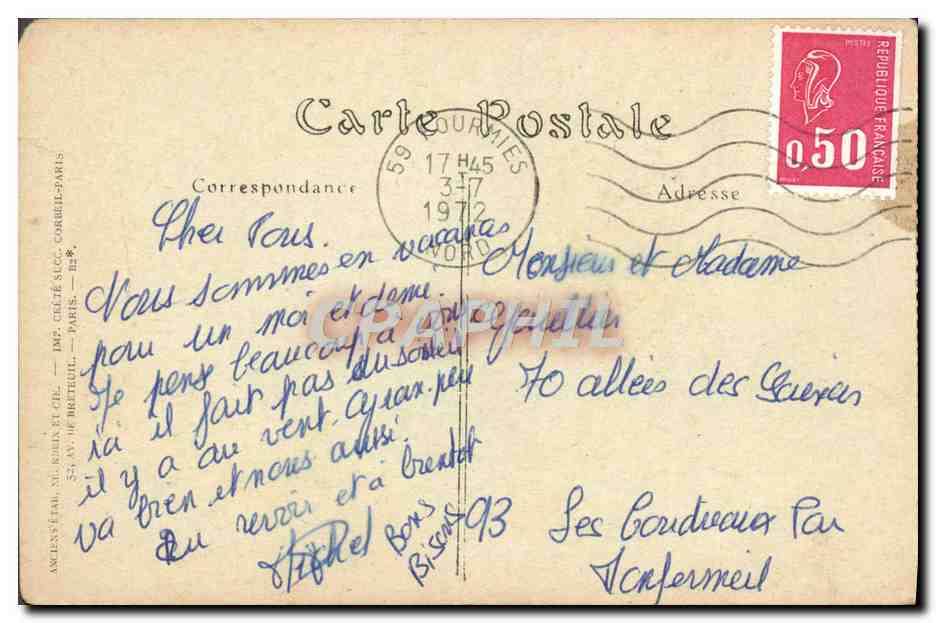 Carte Postale
Correspondance
Adresse
59 FOURMIES
17 H 45
3-7
1972
NORD
POSTES
REPUBLIQUE FRANÇAISE
0,50
ANCIENS ETAB. NEURDEIN ET CIE. — IMP. CRÉTÉ SUCC. CORBEIL-PARIS
52, AV. DE BRETEUIL. — PARIS.
Cher tous.
Nous sommes en vacances
pour un moi et demi.
Je pense beaucoup a vous
ici il fait pas du soleil
il y a du vent. Gran-père
va bien et nous aussi.
Au revoir et à bientot
Michel
Bons
Bisous
Monsieur et Madame
70 allées des
93 Les Coudreaux Par
Monfermeil
CPAPHIL